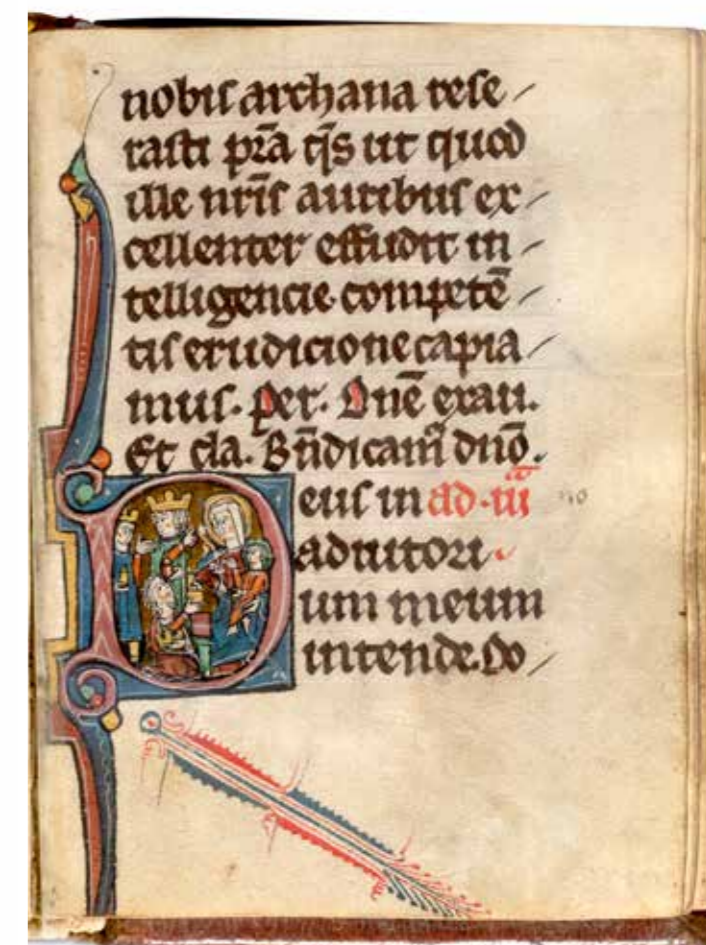 nobis archana rese
rasti pr̄a q̄s ut quod
ille nr̄is auribus ex
cellenter effudit in
telligencie competē
tis erudicione capia
mus. per. Dnē exau.
Et cla. Bn̄dicam⁹ dn̄o.
Deus in ad .iii
adiutori
um meum
intende. Do